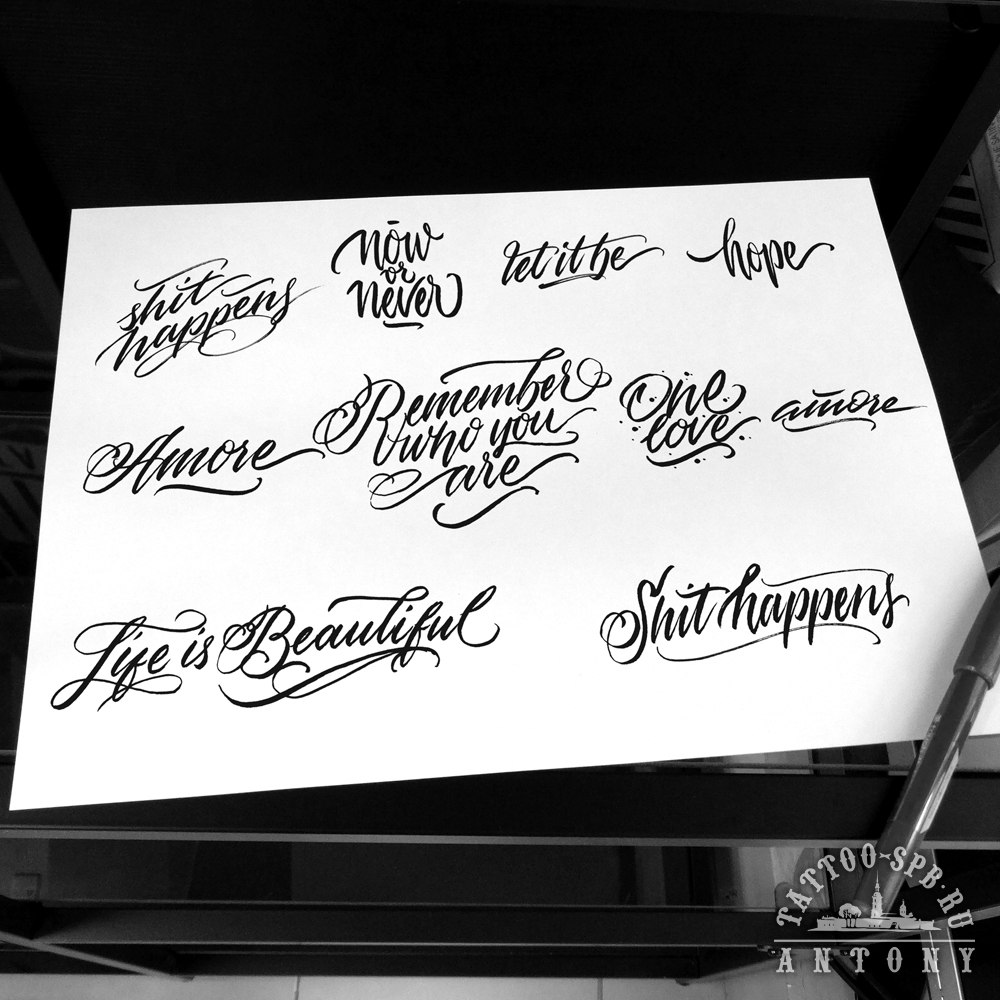 shit
happens
now
or
never
let it be
hope
Amore
Remember
who you
are
One
love
amore
Life is Beautiful
Shit happens
TATTOO-SPB.RU
ANTONY